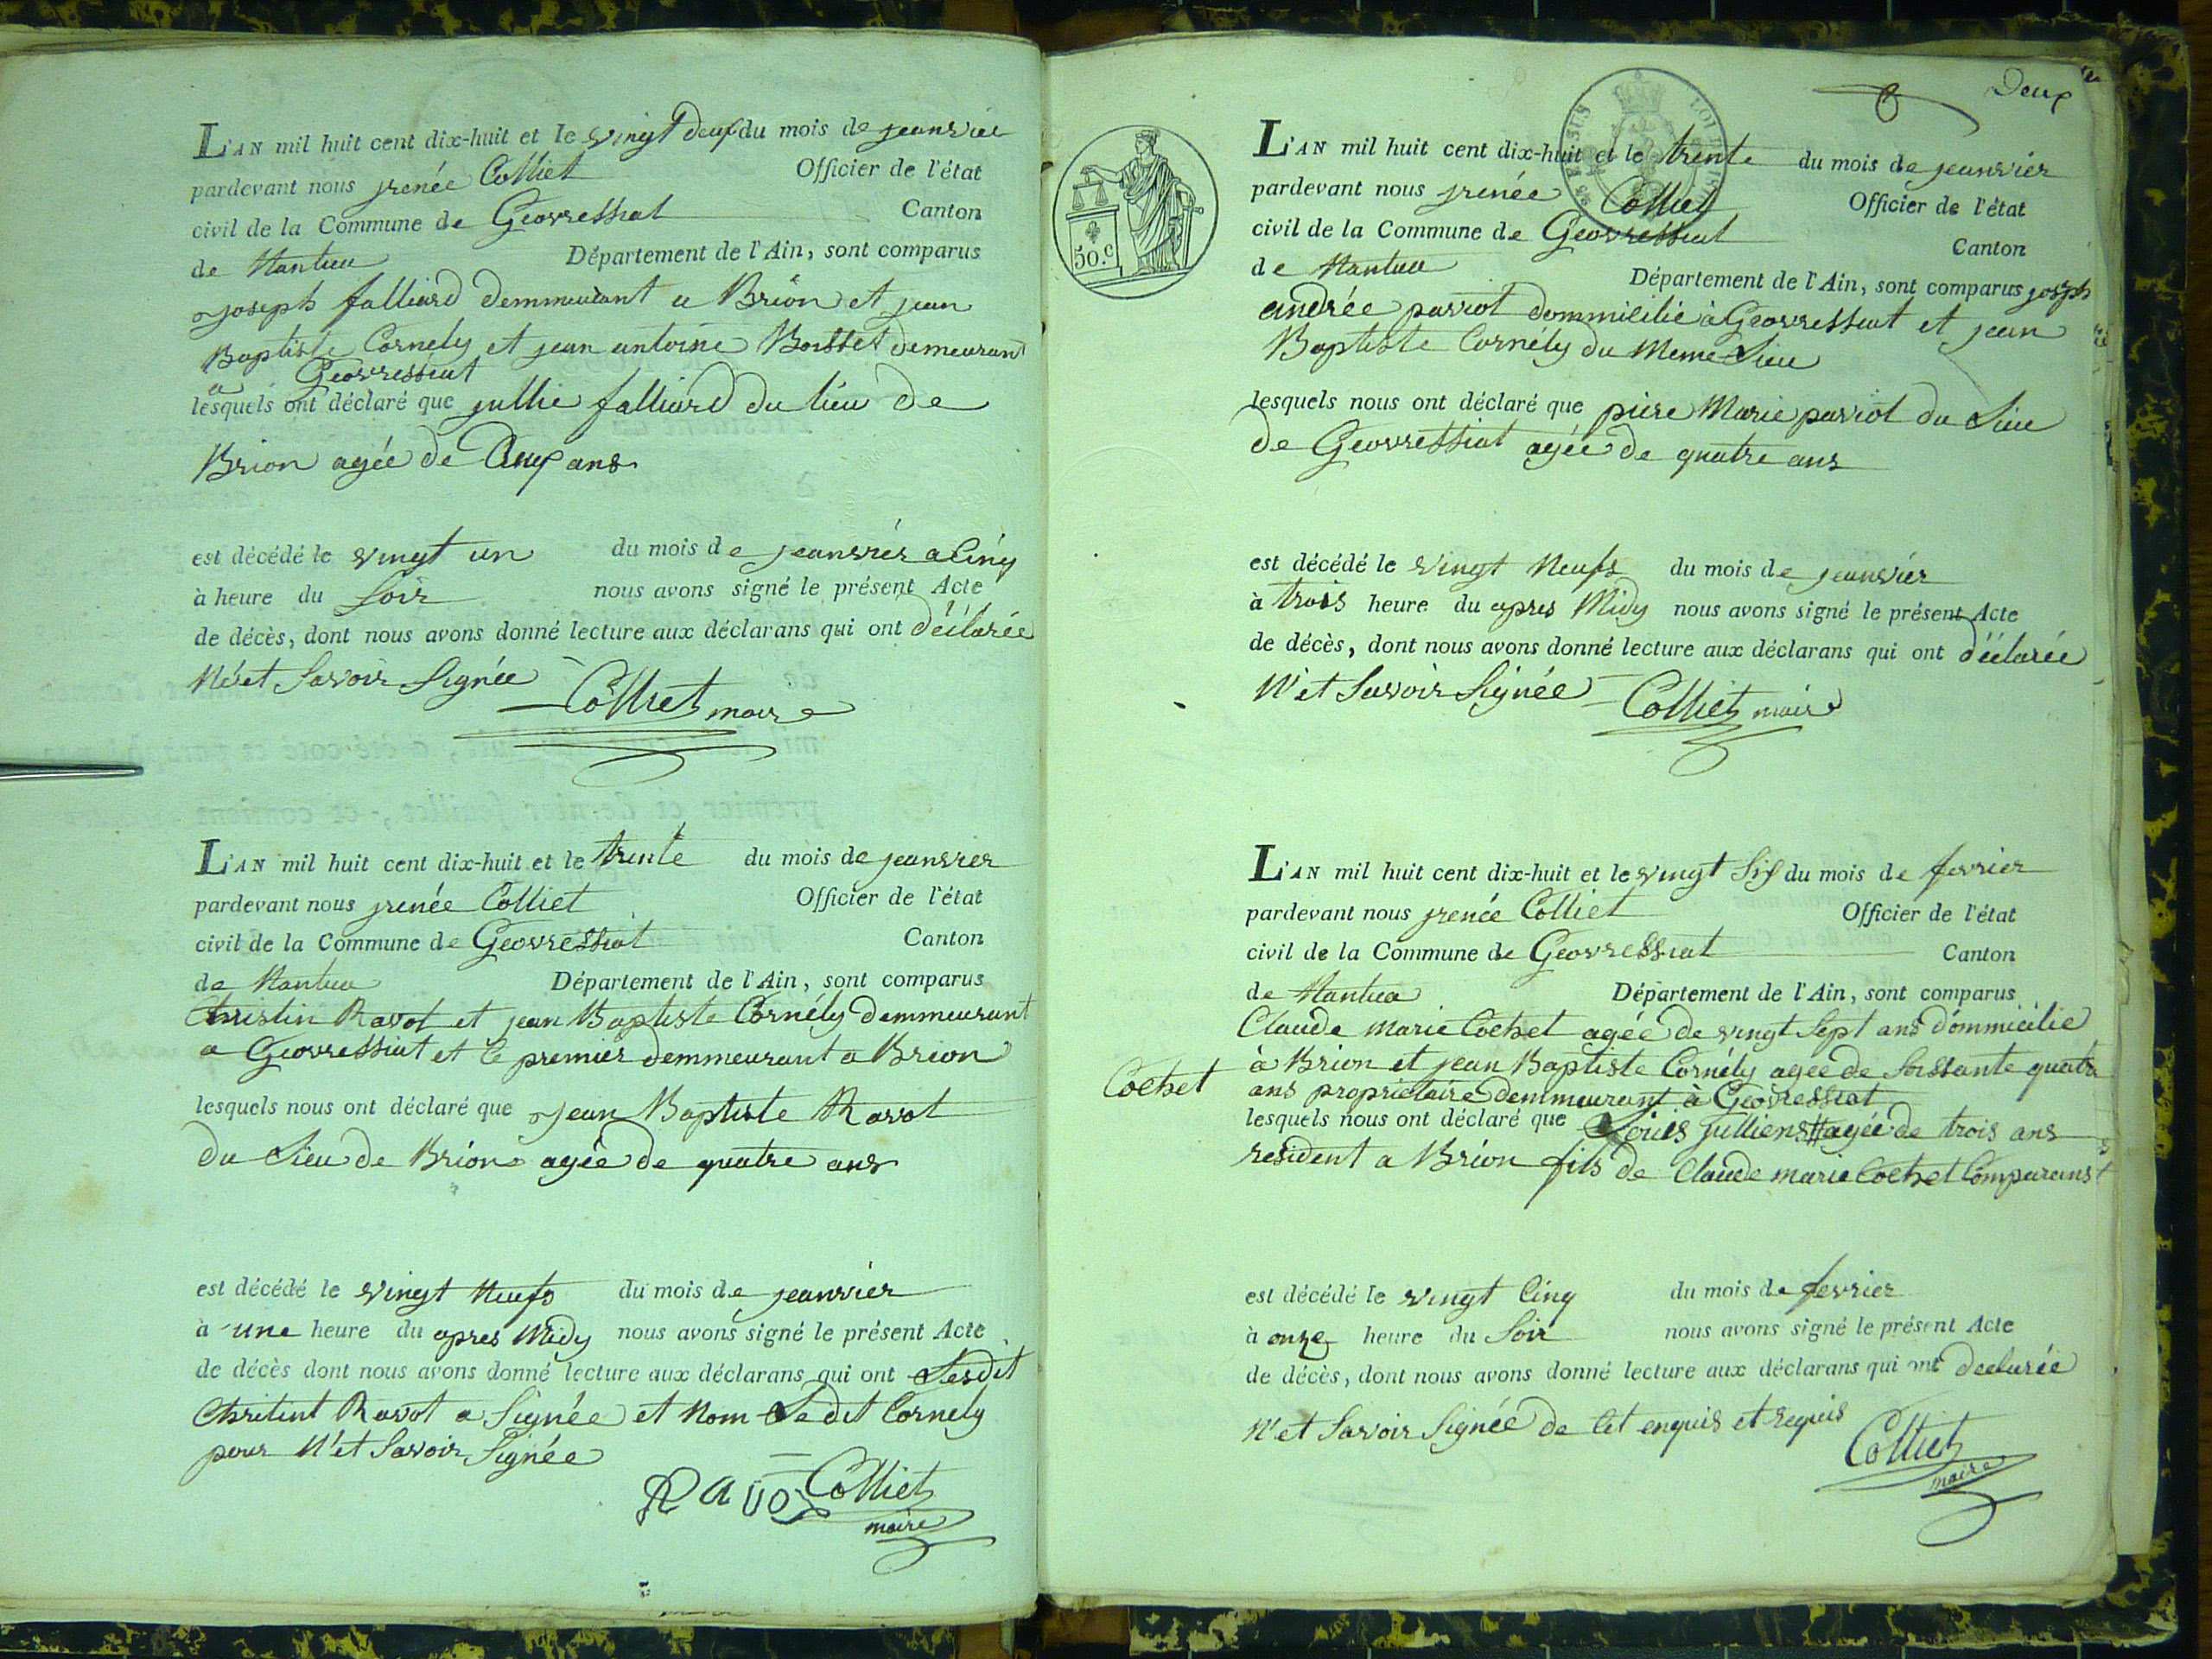 L'AN mil huit cent dix-huit et le vingt deux du mois de jeanvier
pardevant nous jrenée Colliet Officier de l'état
civil de la Commune de Geovressiat Canton
de Nantua Département de l'Ain, sont comparus
joseph falliard demmeurant a Brion et jean
Baptiste Cornely et jean antoine Bosset demeurant
a Geovressiat
lesquels ont déclaré que jullie falliard du lieu de
Brion agée de Deux ans
est décédé le vingt un du mois de jeanvier a Cinq
à heure du Soir nous avons signé le présent Acte
de décès, dont nous avons donné lecture aux déclarans qui ont déclarée
N'et Savoir Signée Colliet maire
L'AN mil huit cent dix-huit et le trente du mois de jeanvier
pardevant nous jrenée Colliet Officier de l'état
civil de la Commune de Geovressiat Canton
de Nantua Département de l'Ain, sont comparus
Christin Ravot et jean Baptiste Cornély demmeurant
a Geovressiat et le premier demmeurant a Brion
lesquels nous ont déclaré que jean Baptiste Ravot
du Lieu de Brion agée de quatre ans
est décédé le vingt Neufs du mois de jeanvier
à une heure du apres Midy nous avons signé le présent Acte
de décès dont nous avons donné lecture aux déclarans qui ont Lesdit
Chritint Ravot a Signée et Nom Ledit Cornely
pour N'et Savoir Signée
RAVOT Colliet
maire
Deux
L'AN mil huit cent dix-huit et le trente du mois de jeanvier
pardevant nous jrenée Colliet Officier de l'état
civil de la Commune de Geovressiat Canton
de Nantua Département de l'Ain, sont comparus joseph
andrée paviot dommicilié à Geovressiat et jean
Baptiste Cornély du Meme Lieu
lesquels nous ont déclaré que piere Marie paviot du Lieu
de Geovressiat agée de quatre ans
50.C
est décédé le vingt Neufs du mois de jeanvier
à trois heure du apres Midy nous avons signé le présent Acte
de décès, dont nous avons donné lecture aux déclarans qui ont déclarée
N'et Savoir Signée Colliet maire
L'AN mil huit cent dix-huit et le vingt Six du mois de fevrier
pardevant nous jrenée Colliet Officier de l'état
civil de la Commune de Geovressiat Canton
de Nantua Département de l'Ain, sont comparus
Claude marie Cochet agée de vingt Sept ans dommicilie
à Brion et jean Baptiste Cornély agee de Soissante quatre
Cochet
ans proprietaire demmeurant à Geovressiat
lesquels nous ont déclaré que Louis Julliens agée de trois ans
resident a Brion fils de Claude marie Cochet Comparans
est décédé le vingt Cinq du mois de fevrier
à onze heure du Soir nous avons signé le présent Acte
de décès, dont nous avons donné lecture aux déclarans qui ont declarée
N'et Savoir Signée de Cet enquis et requis
Colliet
maire